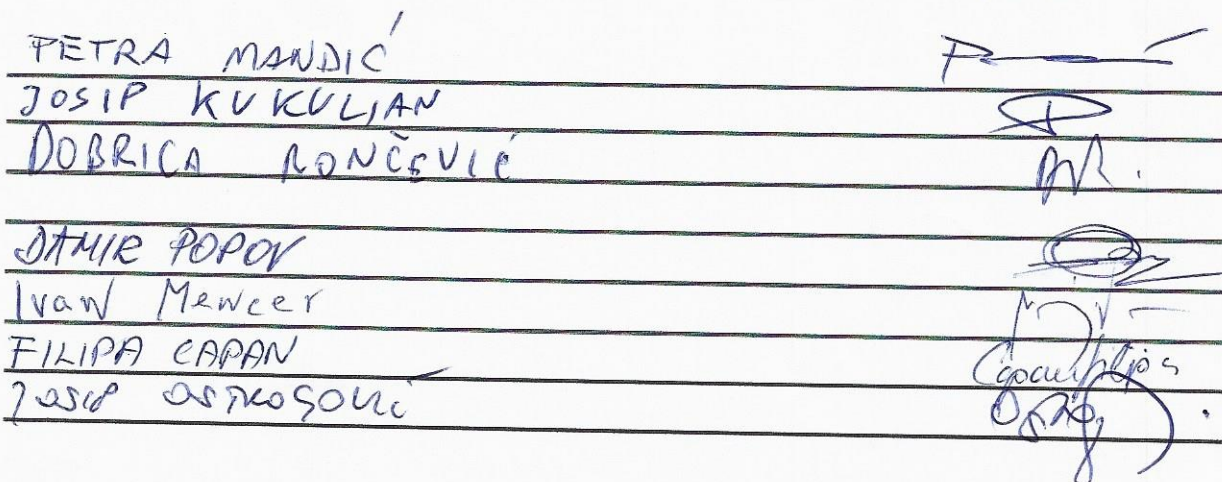 PETRA MANDIĆ
JOSIP KUKULJAN
DOBRICA RONČEVIĆ
DAMIR POPOV
Ivan Mencer
FILIPA CAPAN Capan Filipa
Josip OSTROGOVIĆ